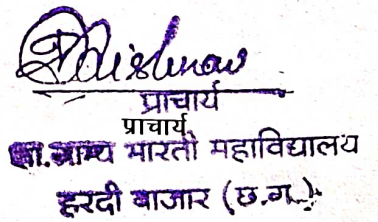 प्राचार्य
प्राचार्य
शा.ग्राम्य भारती महाविद्यालय
हरदी बाजार (छ.ग.)